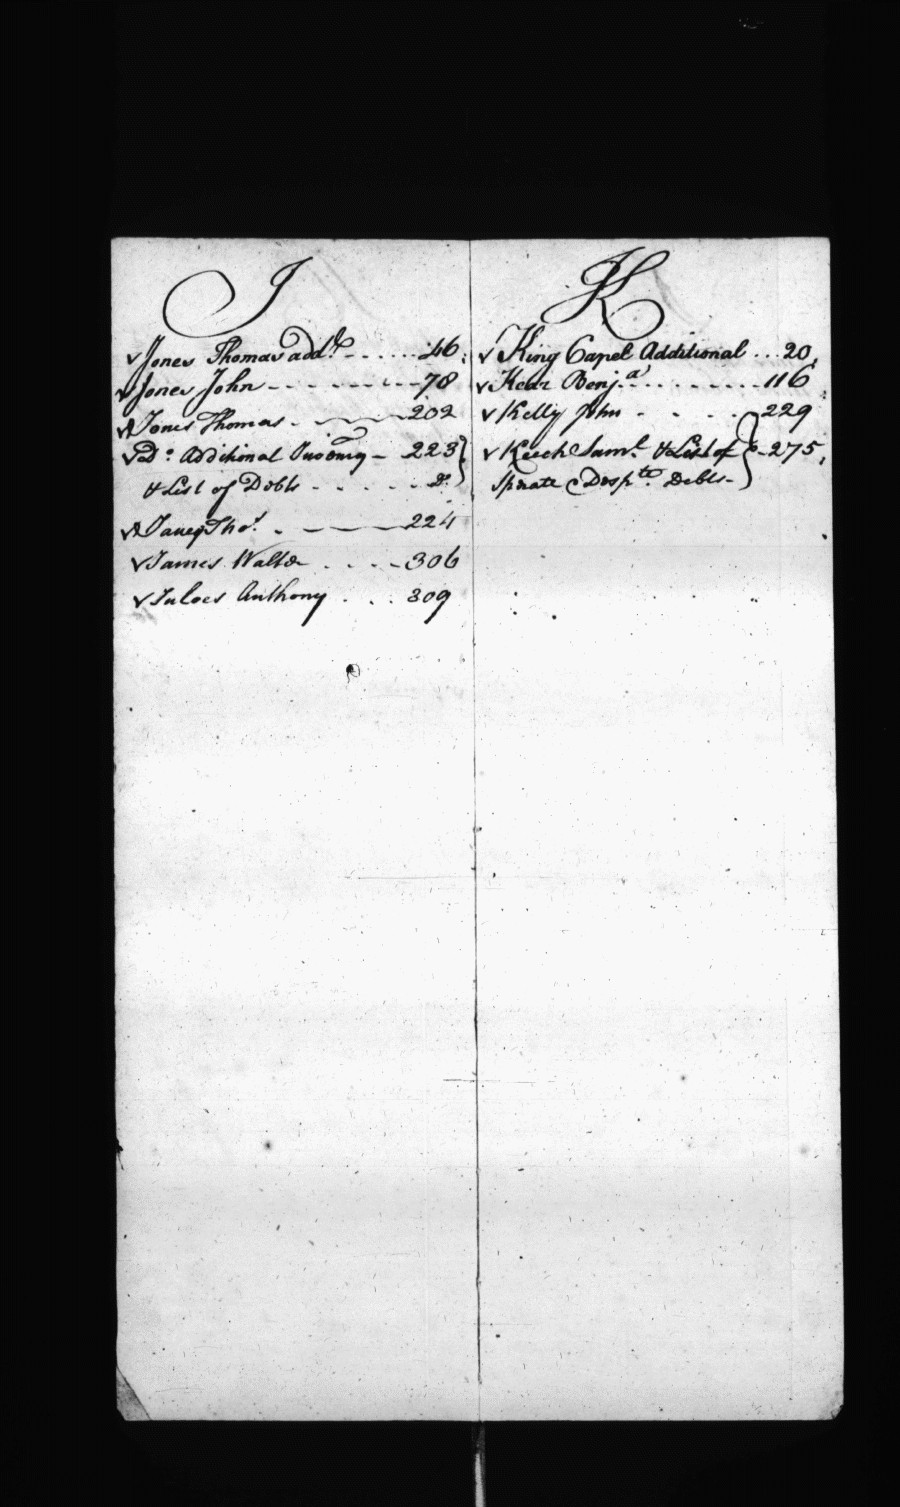 J
Jones Thomas add.l - - - - - - 46
Jones John - - - - - - - - - 78
Jones Thomas - - - - 202
D.o Additional Inventory - 223
& List of Debts - - - - - - D.o
Tho.s - - - - 224
James Walter - - - - 306
Anthony - - - 309
K
King Capel Additional - - - 20
Kear Benj.a - - - - - - - - - 116
Kelly John - - - - - 229
Keech Sam.l & List of - 275
Sperate & Desp.te Debts -